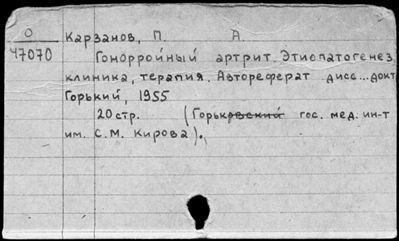 О
47070
Карзанов, П. А.
Гонорройный артрит. Этиопатогенез,
клиника, терапия. Автореферат дисс...докт
Горький, 1955
20 стр. (Горьковский гос. мед. ин-т
им. С.М. Кирова).